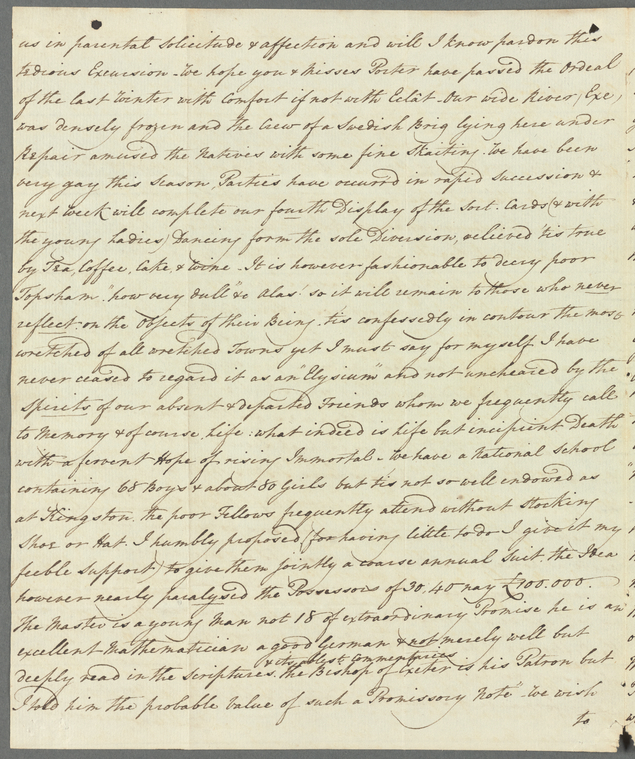 us in parental Solicitude & affection and will I know pardon this
tedious Excursion - We hope you & Misses Porter have passed the Ordeal
of the last Winter with Comfort if not with Eclât - Our wide River, (Exe,)
was densely frozen and the Crew of a Swedish Brig lying here under
Repair amused the Natives with some fine Skaiting. We have been
very gay this Season, Parties have occurr'd in rapid succession &
next Week will complete our fourth Display of the Sort. Cards (& with
the young Ladies) Dancing form the sole Diversion, relieved 'tis true
by Tea, Coffee, Cake, & Wine. It is however fashionable to decry poor
Topsham "how very dull" &c Alas! so it will remain to those who never
reflect on the Objects of their Being. tis confessedly in contour the most
wretched of all wretched Towns yet I must say for myself I have
never ceased to regard it as an "Elysium" and not uncheared by the
Spirits of our absent & departed Friends whom we frequently call
to Memory & of course, Life: what indeed is Life but incipient Death
with a fervent Hope of rising Immortal - We have a National School
containing 68 Boys & about 80 Girls but tis not so well endowed as
at Kingston. the poor Fellows frequently attend without Stocking
Shoe or Hat. I humbly proposed (for having little to do I give it my
feeble Support) to give them jointly a coarse annual Suit. the Idea
however nearly paralysed the Possessors of 30, 40 nay £100.000.
The Master is a young Man not 18 of extraordinary Promise he is an
excellent Mathematician a good German & not merely well but
& its ablest Commentaries
deeply read in the Scriptures. the Bishop of Exeter is his Patron but
I told him the probable Value of such a Promissory Note" - We wish
to